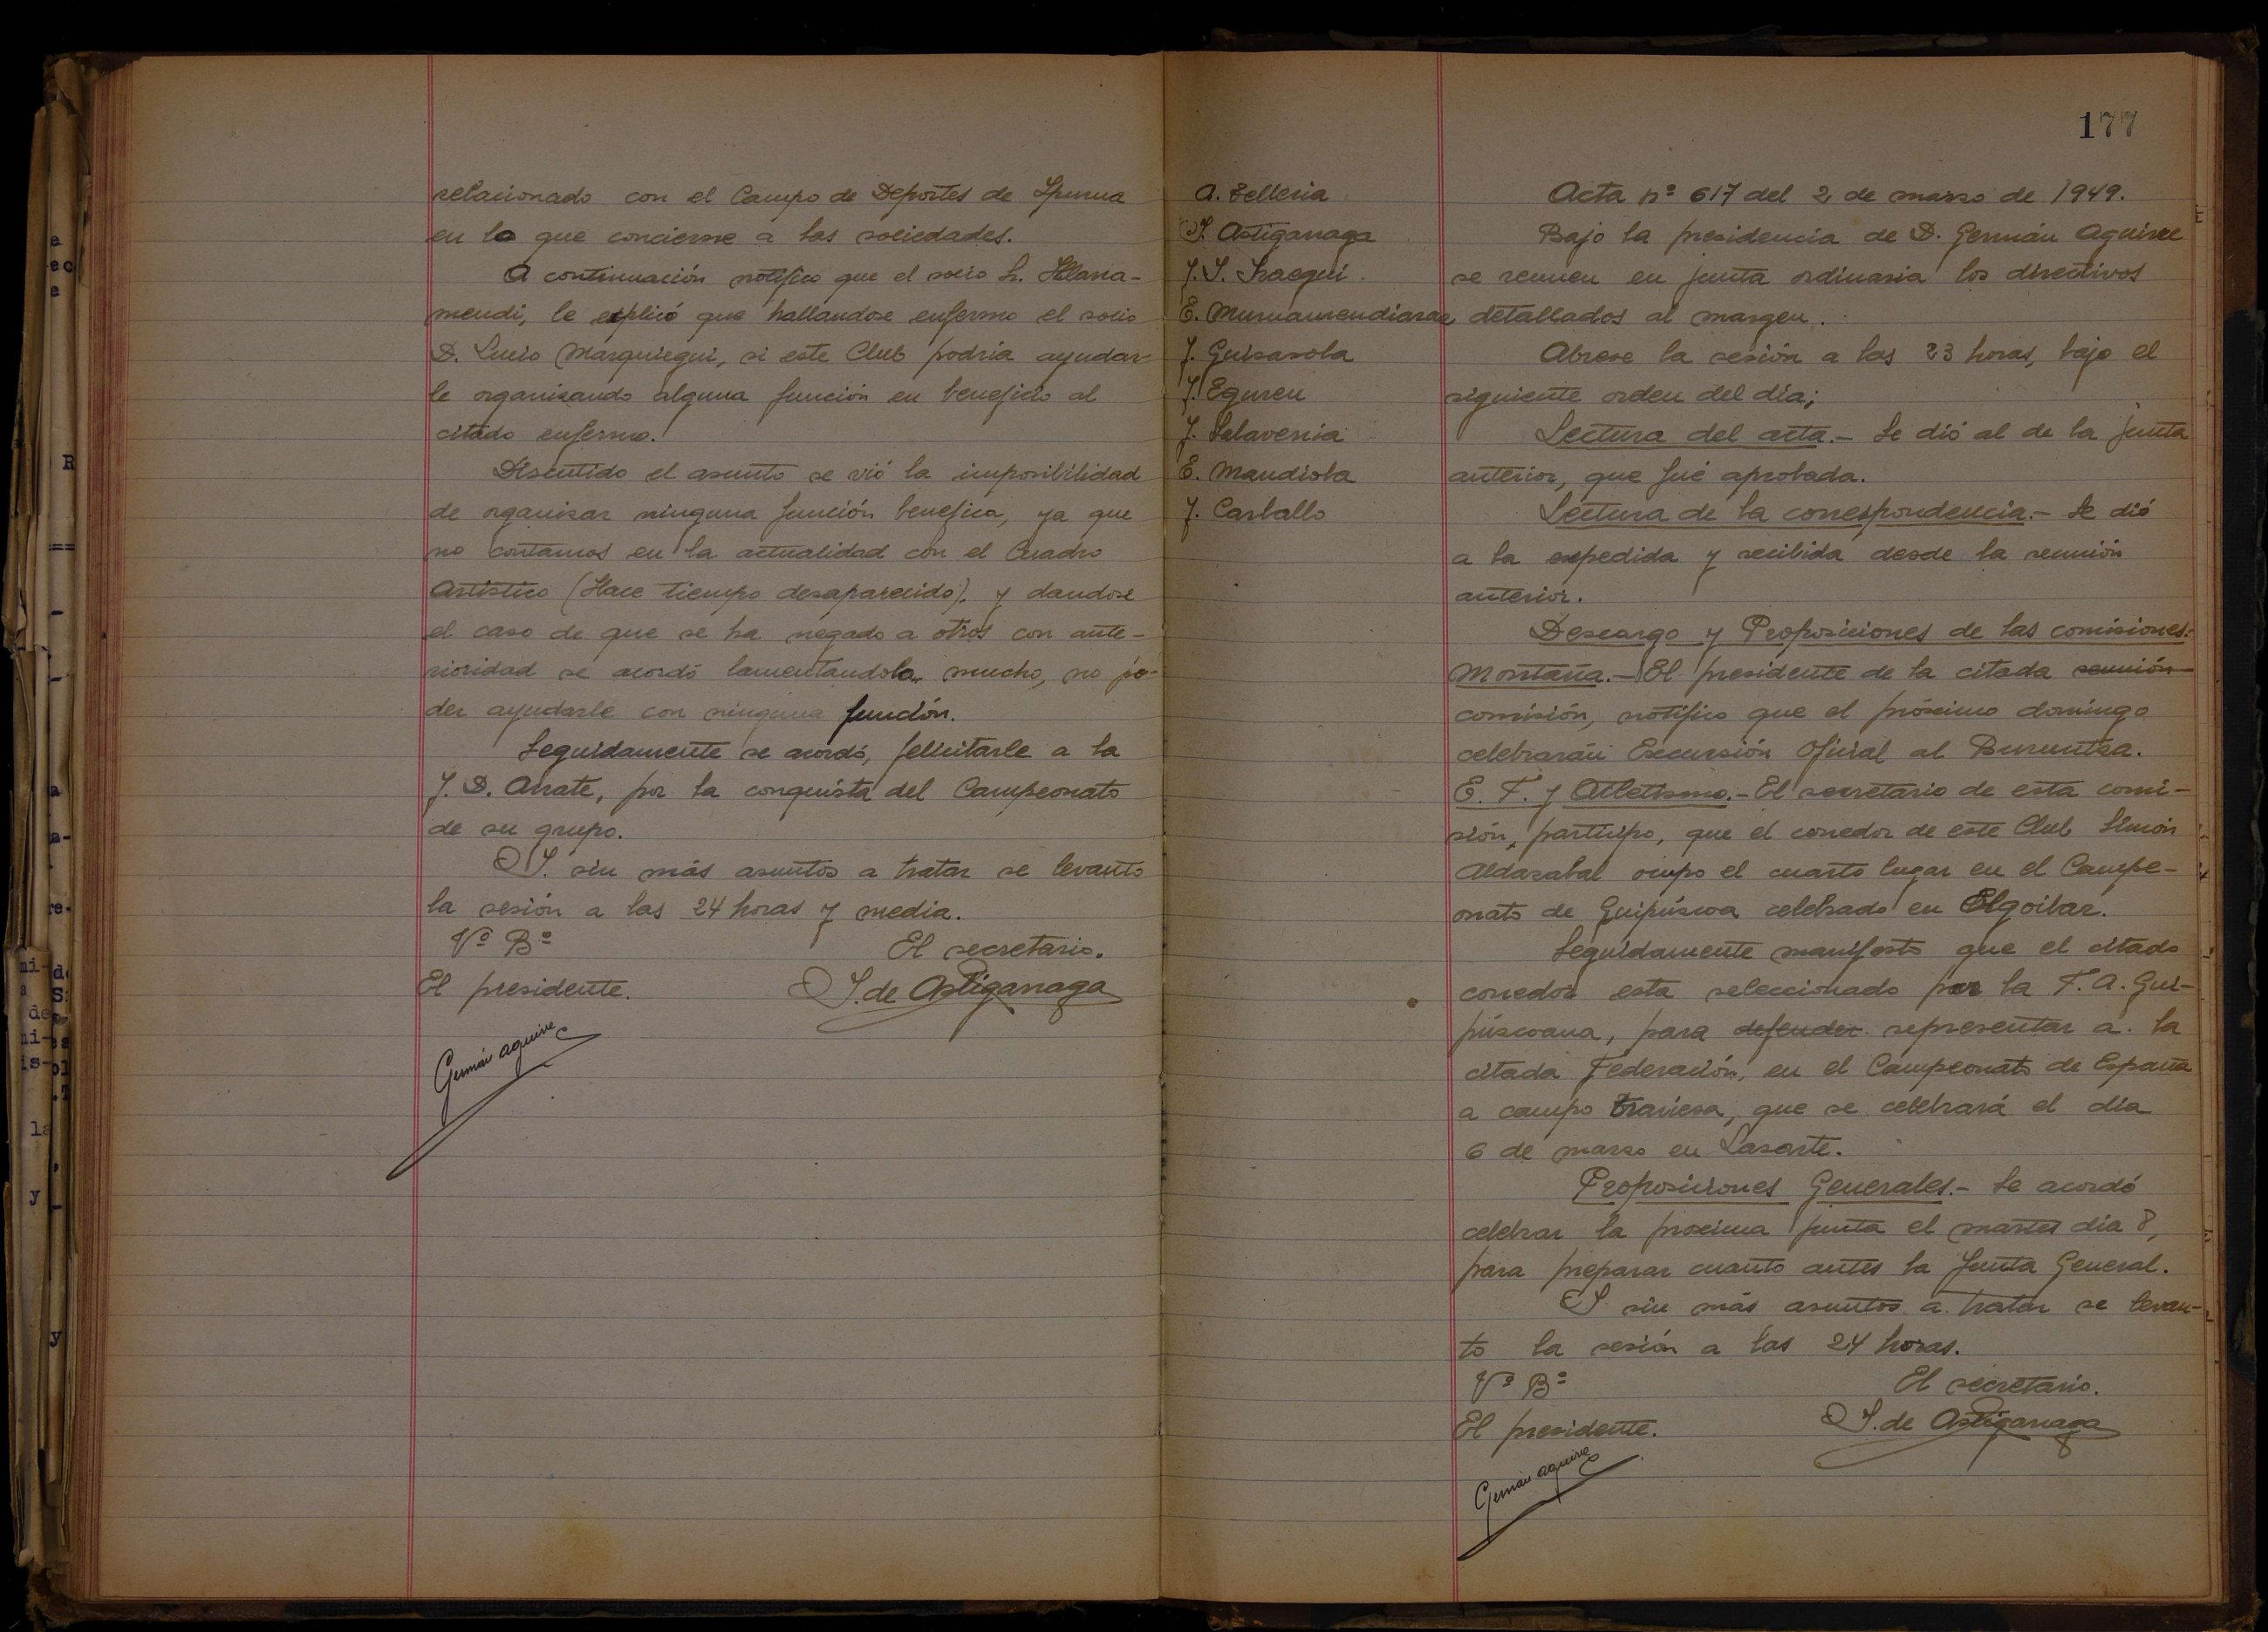 relacionado con el Campo de Deportes de Ipurua
en lo que concierne a las sociedades.
A continuación notifico que el socio Sr. Illarra-
mendi, le explicó que hallandose enfermo el socio
D. Lucio Marquiegui, si este Club podria ayudar-
le organizando alguna función en beneficio al
citado enfermo.
Discutido el asunto se vió la imposibilidad
de organizar ninguna función benefica, ya que
no contamos en la actualidad con el Cuadro
Artístico (Hace tiempo desaparecido). y dandose
el caso de que se ha negado a otros con ante-
rioridad se acordó lamentandolo mucho, no po-
der ayudarle con ninguna función.
Seguidamente se acordó, felicitarle a la
J. D. Arrate, por la conquista del Campeonato
de su grupo.
Y. sin más asuntos a tratar se levanto
la sesión a las 24 horas y media.
Vº Bº
El secretario.
El presidente.
I. de Astigarraga
Germán aguirre
177
A. Telleria
I. Astigarraga
J. I. Iraegui.
E. Murumendiaraz
J. Guisasola
J. Eguren
J. Salaverria
E. Mandiola
J. Carballo
Acta nº 617 del 2 de marzo de 1949.
Bajo la presidencia de D. Germán Aguirre
se reunen en junta ordinaria los directivos
detallados al margen.
Abrese la sesión a las 23 horas, bajo el
siguiente orden del día;
Lectura del acta.- Se dió al de la junta
anterior, que fué aprobada.
Lectura de la correspondencia.- Se dió
a la expedida y recibida desde la reunión
anterior.
Descargo y Proposiciones de las comisiones.-
Montaña.- El presidente de la citada reunión
comisión, notifico que el próximo domingo
celebrarán Excursión Oficial al Buruntza.
E. F. y Atletismo.- El secretario de esta comi-
sión, participo, que el corredor de este Club Simón
Aldazabal ocupo el cuarto lugar en el Campe-
onato de Guipúscoa celebrado en Elgoibar.
Seguidamente manifesto que el citado
corredor esta seleccionado por la F. A. Gui-
púscoana, para defender representar a la
citada Federación, en el Campeonato de España
a campo traviesa, que se celebrará el día
6 de marzo en Lasarte.
Proposiciones Generales.- Se acordó
celebrar la proxima junta el martes dia 8,
para preparar cuanto antes la Junta General.
Y sin más asuntos a tratar se levan-
to la sesión a las 24 horas.
Vº Bº
El secretario.
El presidente.
I. de Astigarraga
Germán aguirre